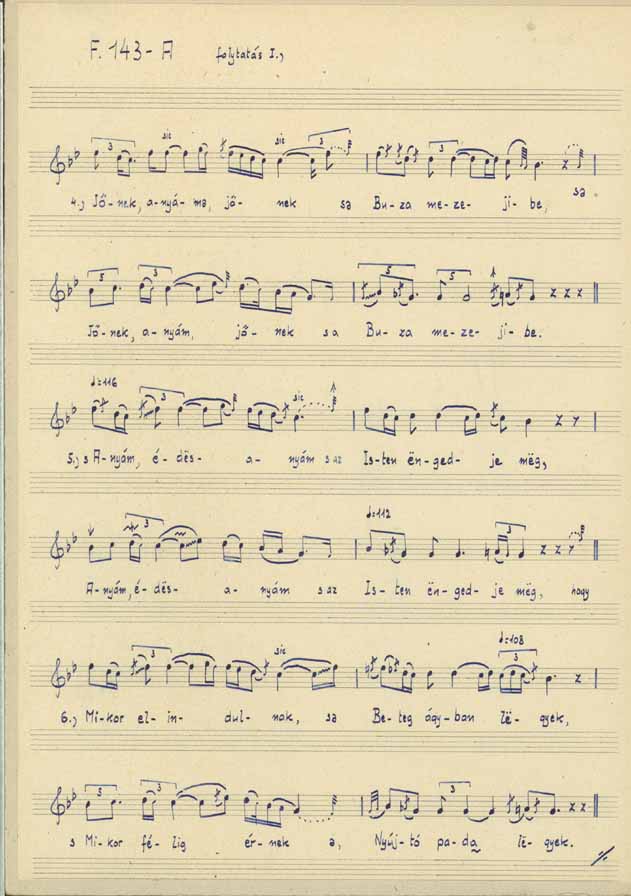 F. 143 - A folytatás I.,
3 sic sic 3 3
4., Jő-nek, a-nyá-ma, jő- nek sa Bu-za me-ze- ji-be, sa
5 3 5 5
Jő-nek, a-nyám, jő- nek s a Bu-za me-ze- ji-be.
♩=116
3 sic
5., s A-nyám, é-dës- a-nyám s az Is-ten ën-ged- je mëg,
♩=112
3 3
A-nyám, é-dës- a- nyám s az Is-ten ën-ged-je mëg, hogy
♩=108
3 sic 3
6., Mi-kor el-in- dul-nak, sa Be-teg ágy-ban lë-gyek,
5 3
s Mi-kor fé-lig ér-nek a, Nyúj-tó pa-da lë-gyek.